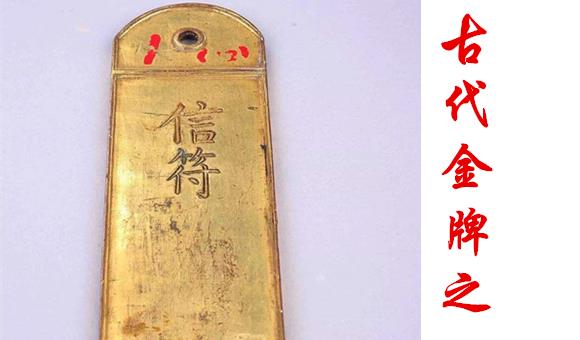 信符
古代金牌之